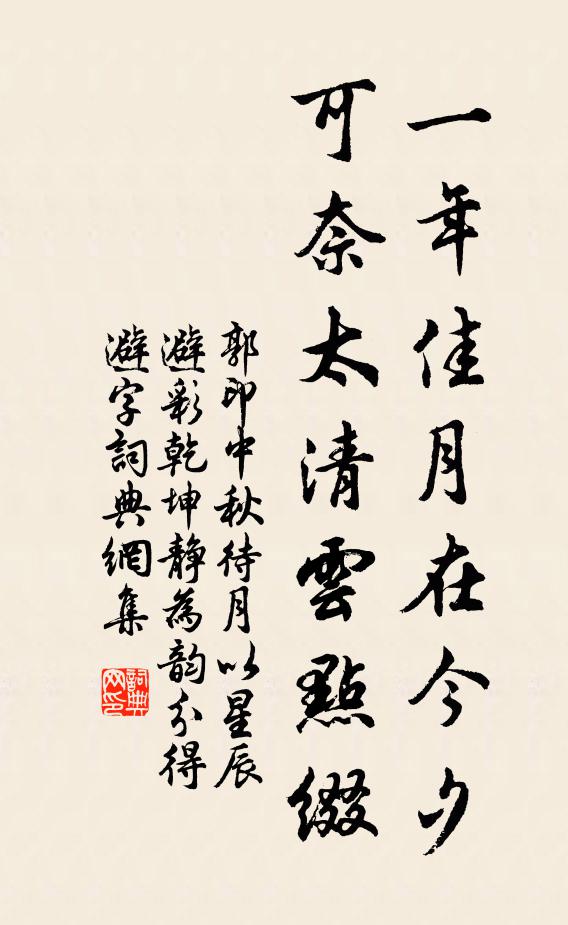 一年佳月在今夕
可奈太清雲點綴
郭印中秋待月以星辰
避彩乾坤静為韵分得
避字詞典網集
詞典网印